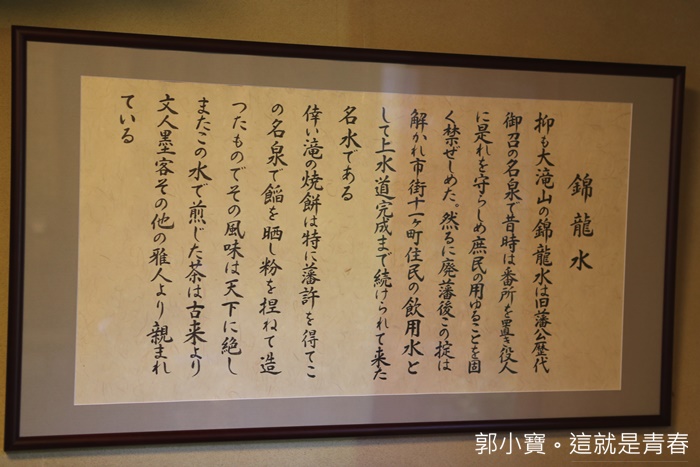 錦龍水
抑も大滝山の錦龍水は旧藩公歴代
御召の名泉で昔時は番所を置き役人
に是れを守らしめ庶民の用ゆることを固
く禁ぜしめた。然るに廃藩後この掟は
解かれ市街十一ヶ町住民の飲用水と
して上水道完成まで続けられて来た
名水である
倖い滝の焼餅は特に藩許を得てこ
の名泉で餡を晒し粉を捏ねて造
つたものでその風味は天下に絶し
またこの水で煎じた茶は古来より
文人墨客その他の雅人より親まれ
ている
郭小寶。這就是青春